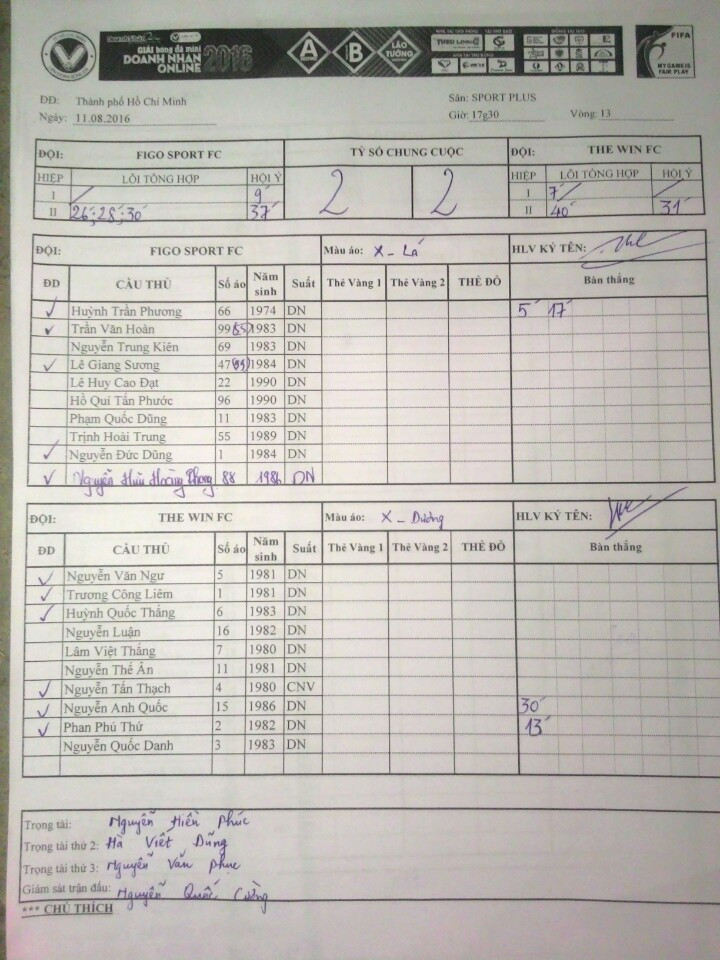 GIẢI bóng đá mini
DOANH NHÂN
ONLINE 2016
A B LÃO TƯỚNG
FIFA
MY GAME IS
FAIR PLAY
ĐĐ: Thành phố Hồ Chí Minh Sân: SPORT PLUS
Ngày: 11.08.2016 Giờ: 17g30 Vòng: 13
ĐỘI: FIGO SPORT FC TỶ SỐ CHUNG CUỘC ĐỘI: THE WIN FC
HIỆP LỖI TỔNG HỢP HỘI Ý 2 2 HIỆP LỖI TỔNG HỢP HỘI Ý
I / 9' I 7' /
II 26'; 28'; 30' 37' II 40' 31'
ĐỘI: FIGO SPORT FC Màu áo: X - Lá HLV KÝ TÊN:
ĐD CẦU THỦ Số áo Năm sinh Suất Thẻ Vàng 1 Thẻ Vàng 2 THẺ ĐỎ Bàn thắng
✓ Huỳnh Trần Phương 66 1974 DN 5' 17'
✓ Trần Văn Hoàn 99 (55) 1983 DN
Nguyễn Trung Kiên 69 1983 DN
✓ Lê Giang Sương 47 (99) 1984 DN
Lê Huy Cao Đạt 22 1990 DN
Hồ Quí Tấn Phước 96 1990 DN
Phạm Quốc Dũng 11 1983 DN
Trịnh Hoài Trung 55 1989 DN
✓ Nguyễn Đức Dũng 1 1984 DN
✓ Nguyễn Hữu Hoàng Phong 88 1986 DN
ĐỘI: THE WIN FC Màu áo: X - Dương HLV KÝ TÊN:
ĐD CẦU THỦ Số áo Năm sinh Suất Thẻ Vàng 1 Thẻ Vàng 2 THẺ ĐỎ Bàn thắng
✓ Nguyễn Văn Ngư 5 1981 DN
✓ Trương Công Liêm 1 1981 DN
✓ Huỳnh Quốc Thắng 6 1983 DN
Nguyễn Luận 16 1982 DN
Lâm Việt Thắng 7 1980 DN
Nguyễn Thế Ân 11 1981 DN
✓ Nguyễn Tấn Thạch 4 1980 CNV
✓ Nguyễn Anh Quốc 15 1986 DN 30'
✓ Phan Phú Thứ 2 1982 DN 13'
Nguyễn Quốc Danh 3 1983 DN
Trọng tài: Nguyễn Hiền Phúc
Trọng tài thứ 2: Hà Việt Dũng
Trọng tài thứ 3: Nguyễn Văn Phúc
Giám sát trận đấu: Nguyễn Quốc Cường
*** CHÚ THÍCH